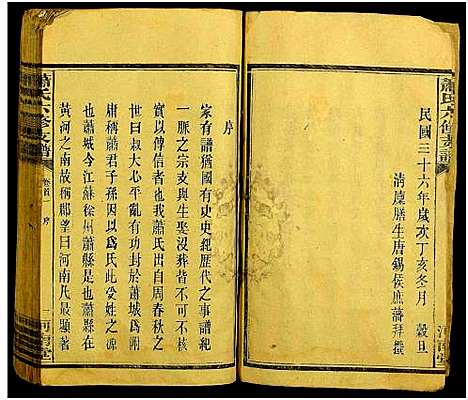 蕭氏六修支譜
民國三十六年歲次丁亥冬月 穀旦
清廩膳生唐錫侯庶藩拜撰
河南堂
序
家有譜猶國有史史紀歷代之事譜紀
一脈之宗支與生娶沒葬皆不可不核
實以傳信者也我蕭氏出自周春秋之
世曰叔大心平亂有功封於蕭城為附
庸稱蕭君子孫因以為氏此受姓之源
也蕭城今江蘇徐州蕭縣是也蕭縣在
黃河之南故稱郡望曰河南凡最顯著
蕭氏六修支譜
卷首 序
二 河南堂